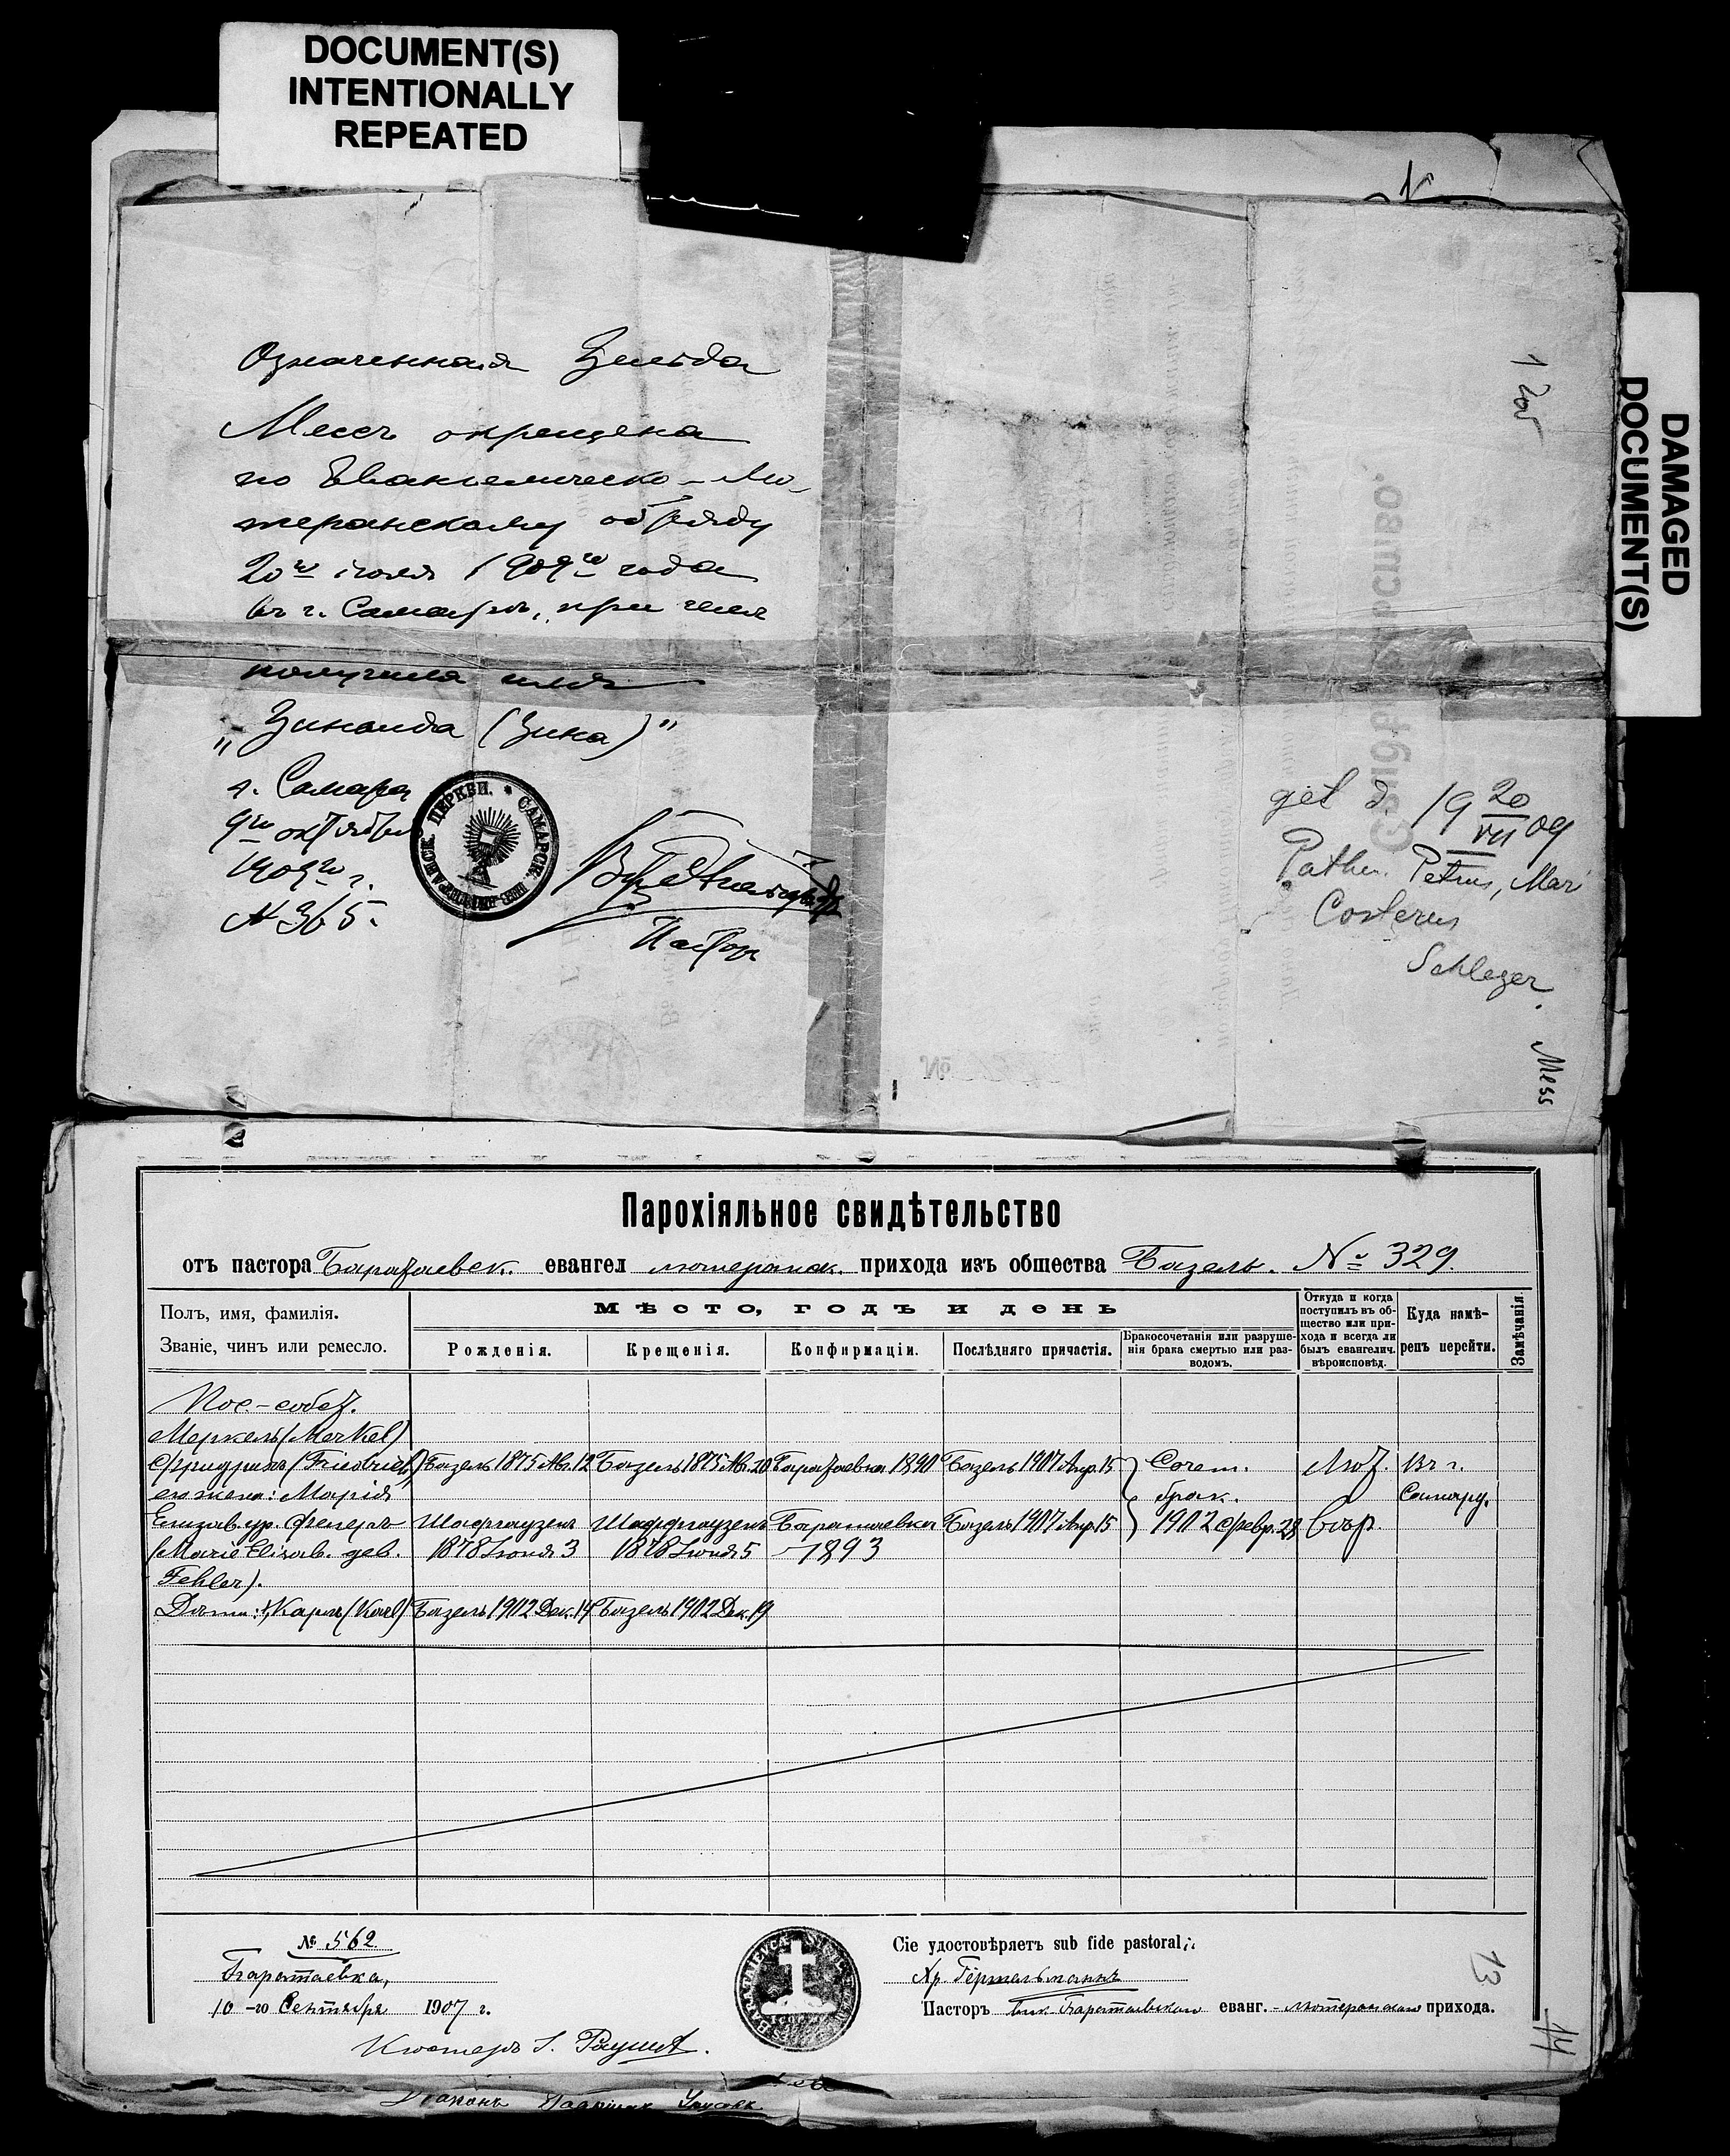 DOCUMENT(S)
INTENTIONALLY
REPEATED
DAMAGED
DOCUMENT(S)
Означенная Зельда
Месс окрещена
по Евангелическо-Лю-
теранскому обряду
20го июля 1909го года
въ г. Самарѣ, при чемъ
получила имя
„Зинаида (Зина)"
г. Самара
9го октября
1909го г.
№ 365.
САМАРСК. ЦЕРКВИ.
Пасторъ
get d. 19 20/VII 09
Pathen. Petrus, Mar
Costerus
Schlezer.
Mess
Парохіяльное свидѣтельство
отъ пастора Баратаевск. евангел лютеранск. прихода изъ общества Базель. № 329.
Полъ, имя, фамилія.
Званіе, чинъ или ремесло.
МѢСТО, ГОДЪ И ДЕНЬ
Рожденія.
Крещенія.
Конфирмаціи.
Послѣдняго причастія.
Бракосочетанія или разруше-
нія брака смертью или раз-
водомъ.
Откуда и когда
поступилъ въ об-
щество или при-
хода и всегда ли
былъ евангелич.
вѣроисповѣд.
Куда намѣ-
ренъ перейти.
Замѣчанія.
Пос.-собст.
Меркель (Merkel)
Фридрихъ (Friedrich) Базель 1875 Авг. 12 Базель 1875 Авг. 20 Баратаевка 1890 Базель 1907 Апр. 15 Сочет. Лют. Въ г.
его жена: Марія брак. Самару.
Елизав. ур. Фелеръ Шафгаузен Шафгаузен Баратаевка Базель 1907 Апр. 15 1902 Февр. 28 вѣр.
(Marie Elisab. geb. 1878 Іюня 3 1878 Іюня 5 1893
Fehler).
Дѣти: 1, Карлъ (Karl) Базель 1902 Дек. 14 Базель 1902 Дек. 19
№ 562.
Баратаевка,
10 -го Сентября 1907 г.
Сіе удостовѣряетъ sub fide pastorali:
Хр. Гёргельманнъ
Пасторъ Баратаевскаго еванг. - лютеранскаго прихода.
Кюстеръ
13
14